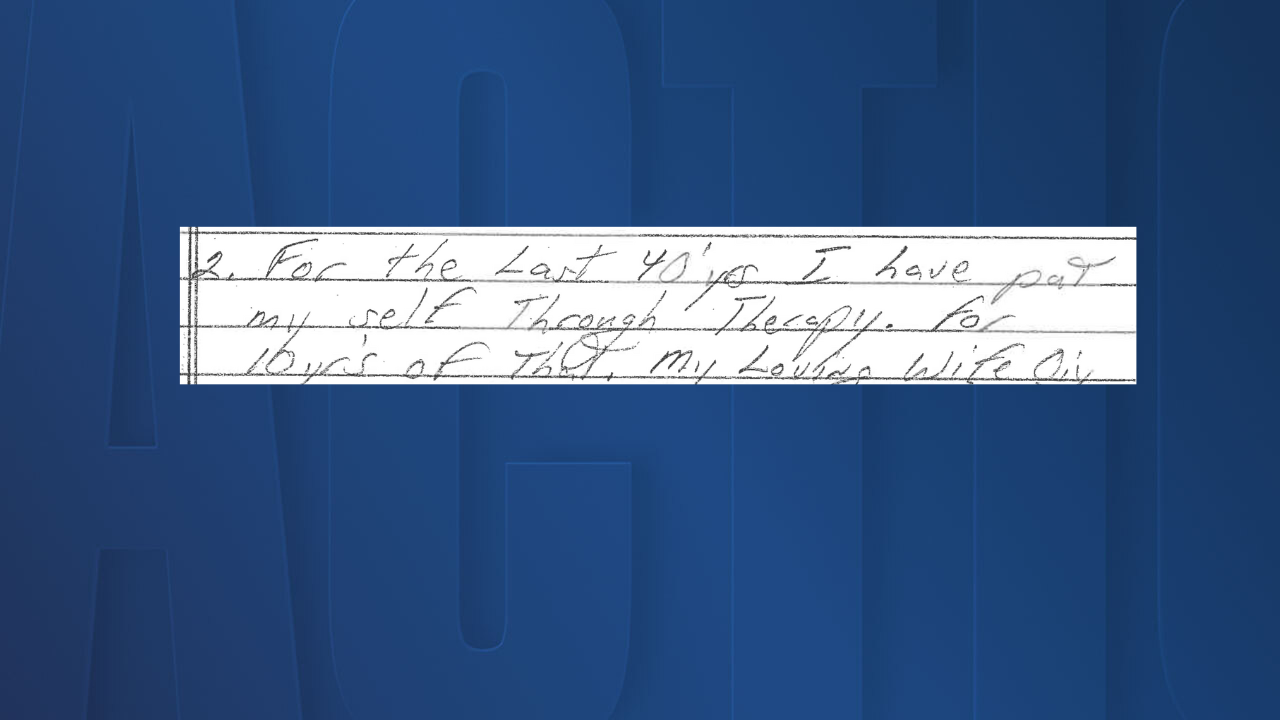 ACTIO
2. For the Last 40'yrs I have put
my self Through Therapy. For
10yr's of That, My Loving Wife Div